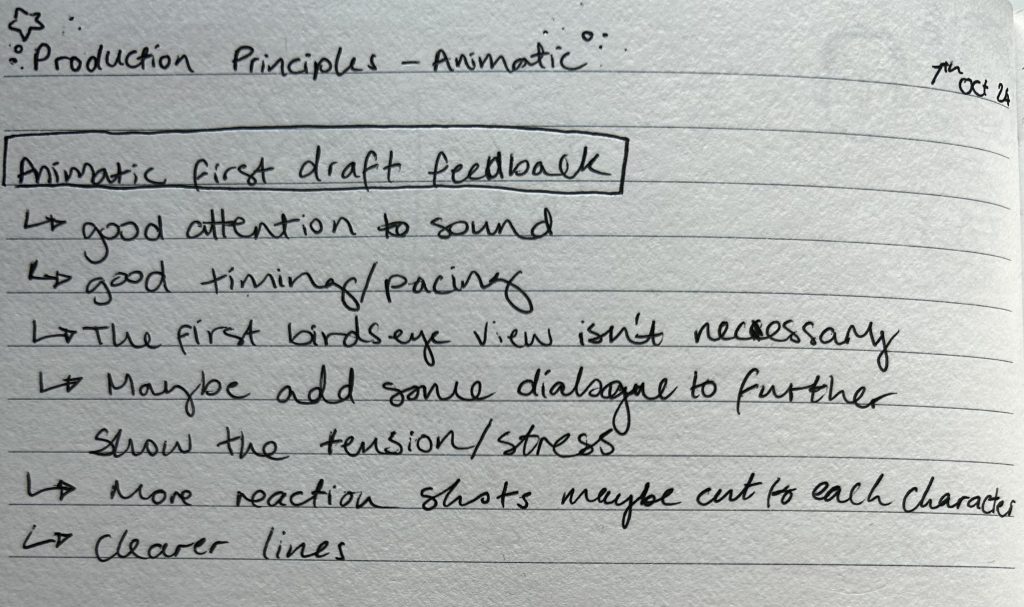 Production Principles - Animatic
7th Oct 24
Animatic first draft feedback
↳ good attention to sound
↳ good timing/pacing
↳ The first birdseye view isn't necessary
↳ Maybe add some dialogue to further
show the tension/stress
↳ More reaction shots maybe cut to each character
↳ Clearer lines